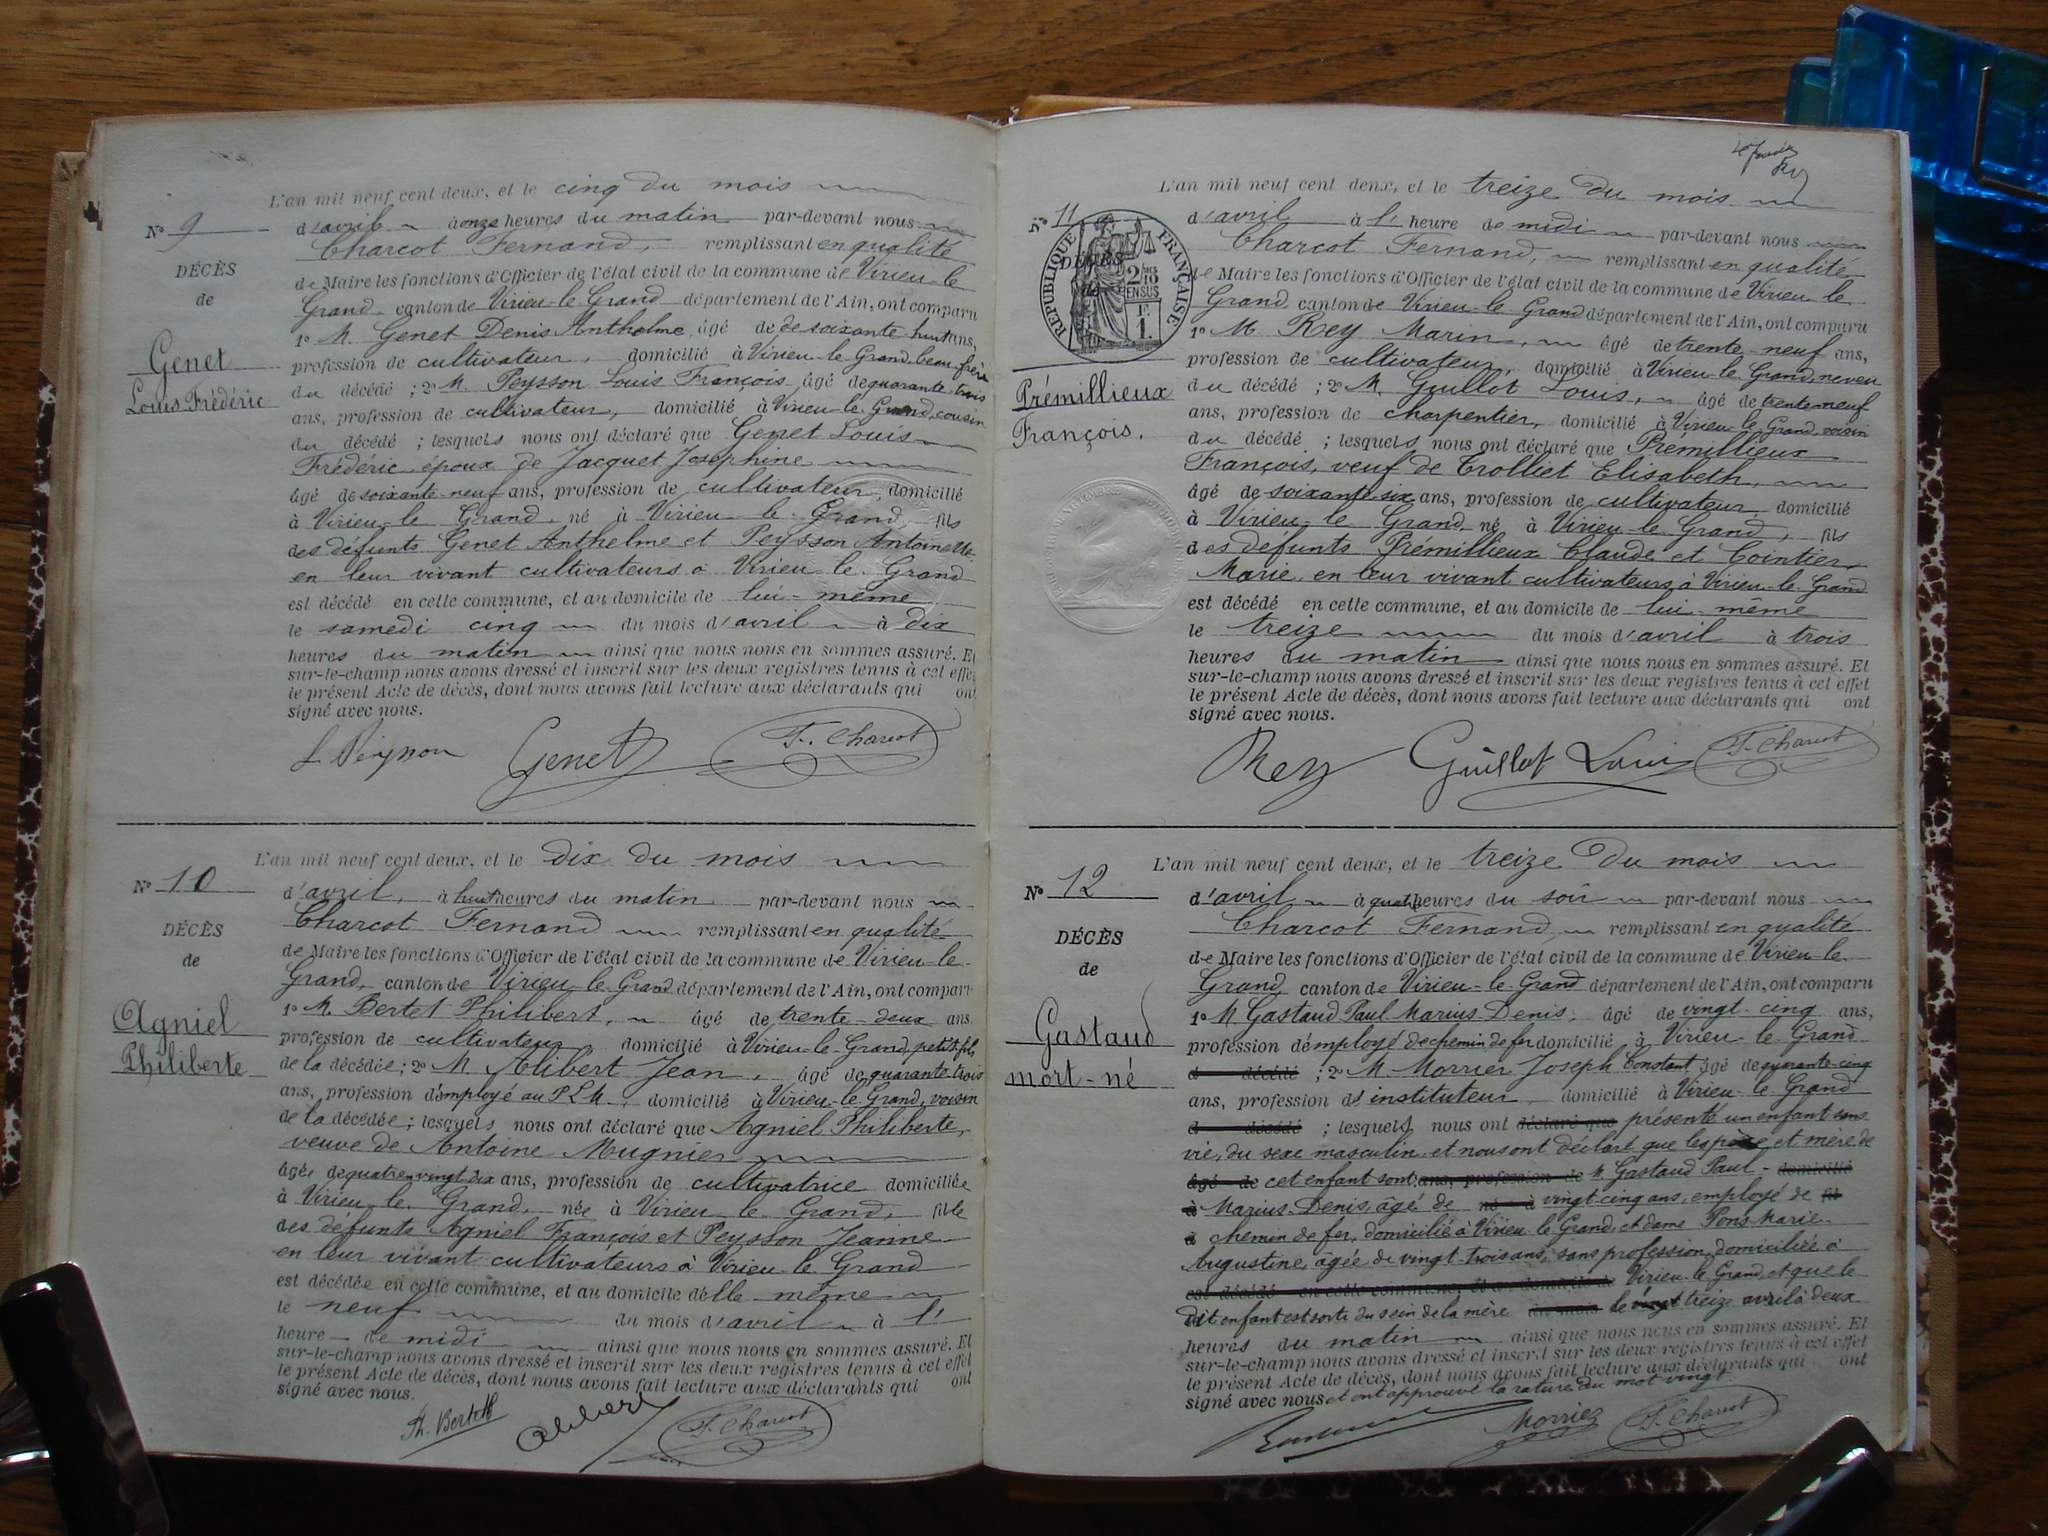 L'an mil neuf cent deux, et le cinq du mois
N° 9
d'avril à onze heures du matin par-devant nous
Charcot Fernand, remplissant en qualité
DÉCÈS
de
Genet
Louis Frédéric
de Maire les fonctions d'Officier de l'état civil de la commune de Virieu-le
Grand canton de Virieu-le-Grand département de l'Ain, ont comparu
1° M. Genet Denis Anthelme âgé de de soixante-huit ans,
profession de cultivateur, domicilié à Virieu-le-Grand, beau-frère
du décédé ; 2° M. Peysson Louis François âgé de quarante-trois
ans, profession de cultivateur, domicilié à Virieu-le-Grand, cousin
du décédé ; lesquels nous ont déclaré que Genet Louis
Frédéric époux de Jacquet Josephine
âgé de soixante-neuf ans, profession de cultivateur, domicilié
à Virieu-le Grand né à Virieu-le Grand, fils
des défunts Genet Anthelme et Peysson Antoinette
en leur vivant cultivateurs à Virieu le Grand
est décédé en cette commune, et au domicile de lui-même
le samedi cinq du mois d'avril à dix
heures du matin ainsi que nous nous en sommes assuré. Et
sur-le-champ nous avons dressé et inscrit sur les deux registres tenus à cet effet
le présent Acte de décès, dont nous avons fait lecture aux déclarants qui ont
signé avec nous.
Genet F. Charcot
L'an mil neuf cent deux, et le dix du mois
N° 10
d'avril, à huit heures du matin par-devant nous
Charcot Fernand remplissant en qualité
DÉCÈS
de
Agniel
Philiberte
de Maire les fonctions d'Officier de l'état civil de la commune de Virieu-le-
Grand, canton de Virieu-le-Grand département de l'Ain, ont comparu
1° M. Bertet Philibert, âgé de trente-deux ans
profession de cultivateur, domicilié à Virieu-le-Grand, petit-fils
de la décédée ; 2° M. Alibert Jean, âgé de quarante-trois
ans, profession d'employé au P.L.M., domicilié à Virieu-le-Grand, voisin
de la décédée ; lesquels nous ont déclaré que Agniel Philiberte,
veuve de Antoine Mugnier
âgée de quatre-vingt dix ans, profession de cultivatrice domiciliée
à Virieu-le Grand, née à Virieu-le Grand, fille
des défunts Agniel François et Peysson Jeanne
en leur vivant cultivateurs à Virieu-le Grand
est décédée en cette commune, et au domicile d'elle même
le neuf du mois d'avril à l'
heure de midi ainsi que nous nous en sommes assuré. Et
sur-le-champ nous avons dressé et inscrit sur les deux registres tenus à cet effet
le présent Acte de décès, dont nous avons fait lecture aux déclarants qui ont
signé avec nous.
Ph. Bertet Alibert F. Charcot
L'an mil neuf cent deux, et le treize du mois
N° 11
d'avril à l' heure de midi par-devant nous
Charcot Fernand, remplissant en qualité
DÉCÈS
de
RÉPUBLIQUE FRANÇAISE
2/10 EN SUS
1F.
Prémillieux
François.
de Maire les fonctions d'Officier de l'état civil de la commune de Virieu-le
Grand canton de Virieu-le-Grand département de l'Ain, ont comparu
1° M. Rey Marin, âgé de trente-neuf ans,
profession de cultivateur, domicilié à Virieu-le Grand, neveu
du décédé ; 2° M. Guillot Louis, âgé de trente-neuf
ans, profession de charpentier, domicilié à Virieu-le-Grand, voisin
du décédé ; lesquels nous ont déclaré que Prémillieux
François, veuf de Trolliet Elisabeth,
âgé de soixante six ans, profession de cultivateur domicilié
à Virieu-le Grand né à Virieu-le Grand, fils
des défunts Prémillieux Claude et Cointier
Marie en leur vivant cultivateurs à Virieu-le-Grand
est décédé en cette commune, et au domicile de lui-même
le treize du mois d'avril à trois
heures du matin ainsi que nous nous en sommes assuré. Et
sur-le-champ nous avons dressé et inscrit sur les deux registres tenus à cet effet
le présent Acte de décès, dont nous avons fait lecture aux déclarants qui ont
signé avec nous.
Rey Guillot Louis F. Charcot
L'an mil neuf cent deux, et le treize du mois
N° 12
d'avril à quatre heures du soir par-devant nous
Charcot Fernand, remplissant en qualité
DÉCÈS
de
Gastaud
mort-né
de Maire les fonctions d'Officier de l'état civil de la commune de Virieu-le
Grand canton de Virieu-le-Grand département de l'Ain, ont comparu
1° M. Gastaud Paul Marius Denis, âgé de vingt-cinq ans,
profession d'employé de chemin de fer domicilié à Virieu le Grand
d décédé ; 2° M. Morrier Joseph Constant âgé de quarante-cinq
ans, profession d'instituteur, domicilié à Virieu-le Grand
d décédé ; lesquels nous ont déclaré que présenté un enfant sans
vie, du sexe masculin et nous ont déclaré que les père et mère de
âgé de cet enfant sont ans, profession de M. Gastaud Paul - domicilié
à Marius-Denis, âgé de né à vingt-cinq ans, employé de fil
d chemin de fer, domicilié à Virieu-le Grand, et dame Pons Marie-
Augustine, âgée de vingt-trois ans, sans profession, domiciliée à
est décédé en cette commune, et a domicile de Virieu-le Grand, et que le
dit enfant est sorti du sein de la mère le vingt treize avril à deux
heures du matin ainsi que nous nous en sommes assuré. Et
sur-le-champ nous avons dressé et inscrit sur les deux registres tenus à cet effet
le présent Acte de décès, dont nous avons fait lecture aux déclarants qui ont
signé avec nous et ont approuvé la rature du mot vingt
Morrier F. Charcot